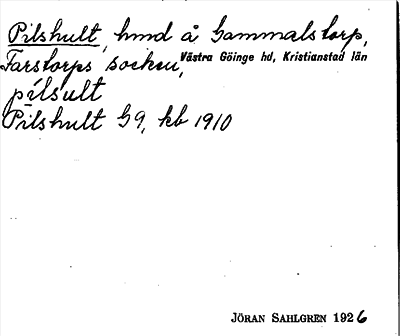 Pilshult, hmd å Gammalstorp,
Farstorps socken, Västra Göinge hd, Kristianstad län
pilsult
Pilshult G9, kb 1910
JÖRAN SAHLGREN 1926